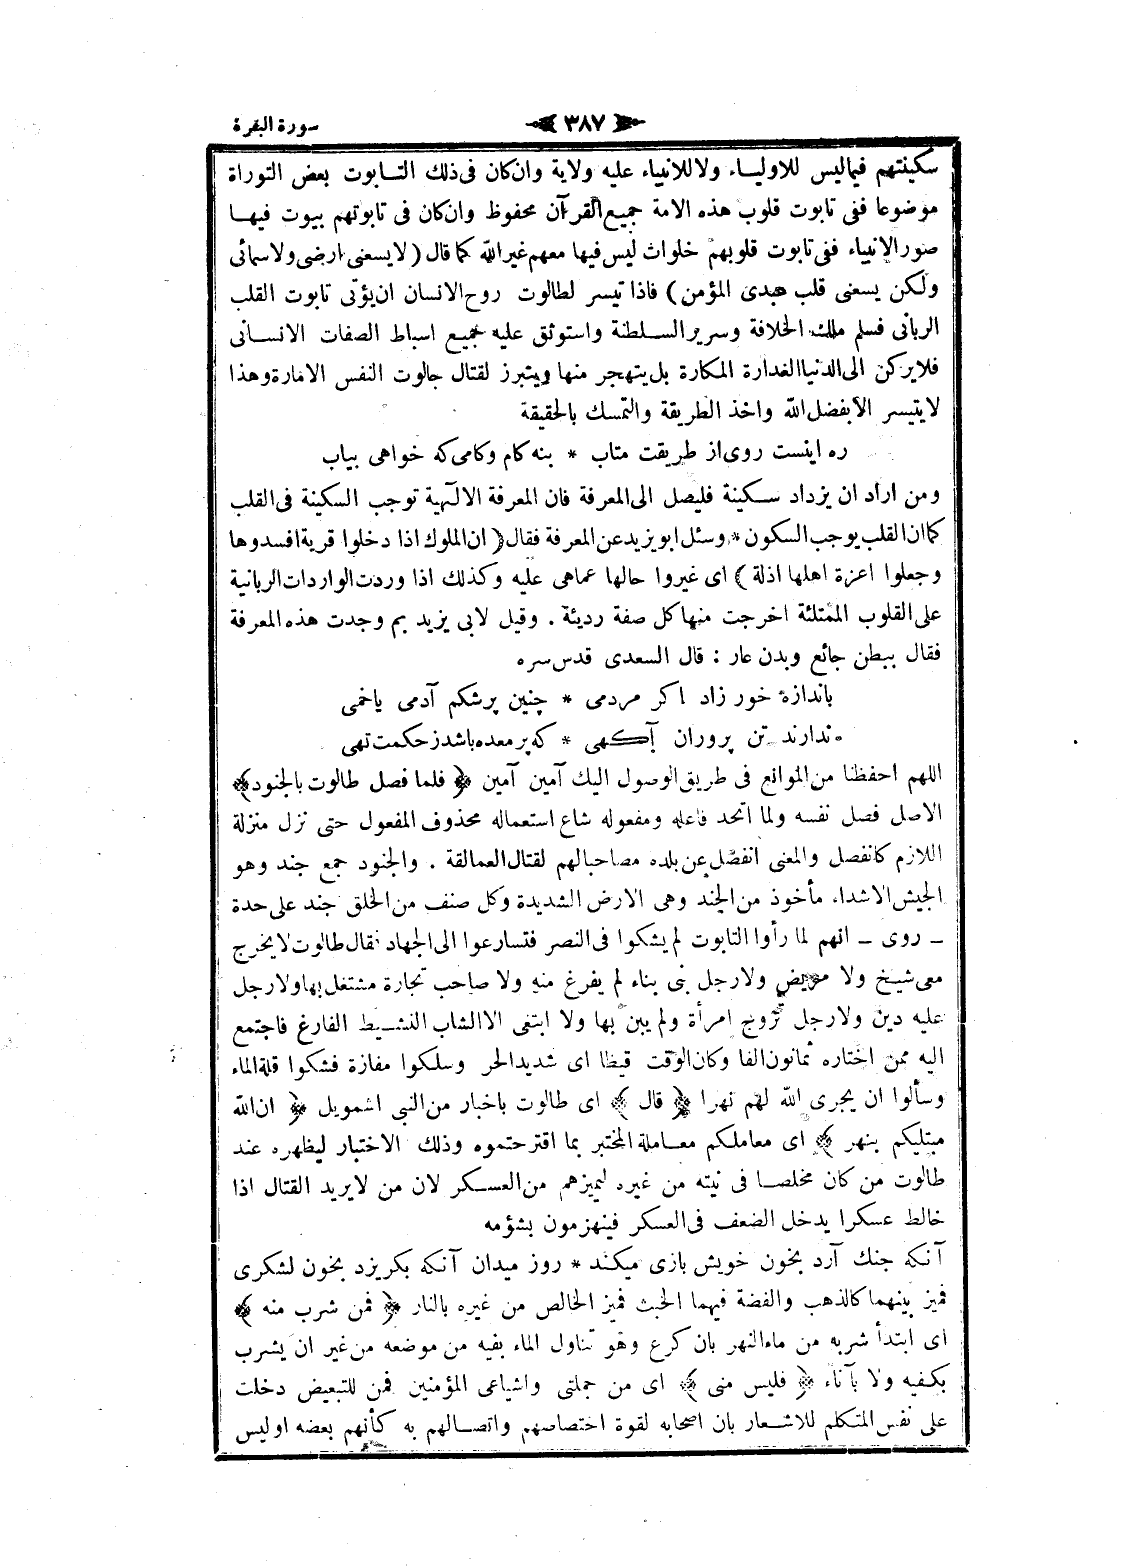 سورة البقرة ﴿٣٨٧﴾
سكينتهم فيماليس للاوليـاء ولاللانبياء عليه ولاية وان كان فى ذلك التـابوت بعض التوراة
موضوعا ففى تابوت قلوب هذه الامة جميع القرآن محفوظ وان كان فى تابوتهم بيوت فيهـا
صور الانبياء ففى تابوت قلوبهم خلوات ليس فيها معهم غير الله كما قال ( لا يسعنى ارضى ولاسمائى
ولكن يسعنى قلب عبدى المؤمن ) فاذا تيسر لطالوت روح الانسان ان يؤتى تابوت القلب
الربانى فسلم ملك الخلافة وسرير السـلطنة واستوثق عليه جميع اسباط الصفات الانسـانى
فلايركن الى الدنيا الغدارة المكارة بل يتهجر منها ويتبرز لقتال جالوت النفس الامارة وهذا
لا يتيسر الا بفضل الله واخذ الطريقة والتمسك بالحقيقة
ره اينست روى از طريقت متاب * بنه كام وكامى كه خواهى بياب
ومن اراد ان يزداد سـكينة فليصل الى المعرفة فان المعرفة الالهية توجب السكينة فى القلب
كما ان القلب يوجب السكون * وسئل ابو يزيد عن المعرفة فقال ( ان الملوك اذا دخلوا قرية افسدوها
وجعلوا اعزة اهلها اذلة ) اى غيروا حالها عماهى عليه وكذلك اذا وردت الواردات الربانية
على القلوب الممتلئة اخرجت منها كل صفة رديئة . وقيل لابى يزيد بم وجدت هذه المعرفة
فقال ببطن جائع وبدن عار : قال السعدى قدس سره
باندازهٔ خور زاد اكر مردمى * چنين پرشكم آدمى ياخمى
ندارند تن پروران آكهى * كه پر معده باشد ز حكمت تهى
اللهم احفظنا من الموانع فى طريق الوصول اليك آمين آمين ﴿ فلما فصل طالوت بالجنود ﴾
الاصل فصل نفسه ولما اتحد فاعله ومفعوله شاع استعماله محذوف المفعول حتى نزل منزلة
اللازم كانفصل والمعنى انفصل عن بلده مصاحبا لهم لقتال العمالقة . والجنود جمع جند وهو
الجيش الاشداء مأخوذ من الجند وهى الارض الشديدة وكل صنف من الخلق جند على حدة
ـ روى ـ انهم لما رأوا التابوت لم يشكوا فى النصر فتسارعوا الى الجهاد فقال طالوت لايخرج
معى شيخ ولا مريض ولارجل بنى بناء لم يفرغ منه ولا صاحب تجارة مشتغل بها ولارجل
عليه دين ولارجل تزوج امرأة ولم يبن بها ولا ابتغى الاالشاب النشـيط الفارغ فاجتمع
اليه ممن اختاره ثمانون الفا وكان الوقت قيظا اى شديد الحر وسلكوا مفازة فشكوا قلة الماء
وسألوا ان يجرى الله لهم نهرا ﴿ قال ﴾ اى طالوت باخبار من النبى اشمويل ﴿ ان الله
مبتليكم بنهر ﴾ اى معاملكم معـاملة المختبر بما اقترحتموه وذلك الاختبار ليظهره عند
طالوت من كان مخلصـا فى نيته من غيره ليميزهم من العسـكر لان من لايريد القتال اذا
خالط عسكرا يدخل الضعف فى العسكر فينهزمون بشؤمه
آنكه جنك آرد بخون خويش بازى ميكند * روز ميدان آنكه بكريزد بخون لشكرى
فميز بينهما كالذهب والفضة فيهما الخبث فميز الخالص من غيره بالنار ﴿ فمن شرب منه ﴾
اى ابتدأ شربه من ماء النهر بان كرع وهو تناول الماء بفيه من موضعه من غير ان يشرب
بكفيه ولا بآناء ﴿ فليس منى ﴾ اى من جملتى واشياعى المؤمنين فمن للتبعيض دخلت
على نفس المتكلم للاشـعار بان اصحابه لقوة اختصاصهم واتصـالهم به كأنهم بعضه اوليس